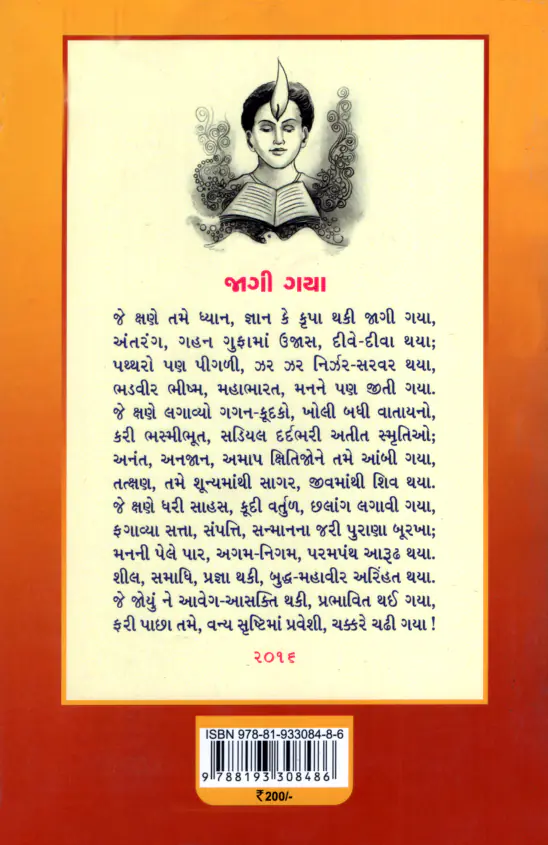 જાગી ગયા
જે ક્ષણે તમે ધ્યાન, જ્ઞાન કે કૃપા થકી જાગી ગયા,
અંતરંગ, ગહન ગુફામાં ઉજાસ, દીવે-દીવા થયા;
પથ્થરો પણ પીગળી, ઝર ઝર નિર્ઝર-સરવર થયા,
ભડવીર ભીષ્મ, મહાભારત, મનને પણ જીતી ગયા.
જે ક્ષણે લગાવ્યો ગગન-કૂદકો, ખોલી બધી વાતાયનો,
કરી ભસ્મીભૂત, સડિયલ દર્દભરી અતીત સ્મૃતિઓ;
અનંત, અનજાન, અમાપ ક્ષિતિજોને તમે આંબી ગયા,
તત્ક્ષણ, તમે શૂન્યમાંથી સાગર, જીવમાંથી શિવ થયા.
જે ક્ષણે ધરી સાહસ, કૂદી વર્તુળ, છલાંગ લગાવી ગયા,
ફગાવ્યા સત્તા, સંપત્તિ, સન્માનના જરી પુરાણા બૂરખા;
મનની પેલે પાર, અગમ-નિગમ, પરમપંથ આરૂઢ થયા.
શીલ, સમાધિ, પ્રજ્ઞા થકી, બુદ્ધ-મહાવીર અરિહંત થયા.
જે જોયું ને આવેગ-આસક્તિ થકી, પ્રભાવિત થઈ ગયા,
ફરી પાછા તમે, વન્ય સૃષ્ટિમાં પ્રવેશી, ચક્કરે ચઢી ગયા !
૨૦૧૬
ISBN 978-81-933084-8-6
9 788193 308486
₹ 200/-